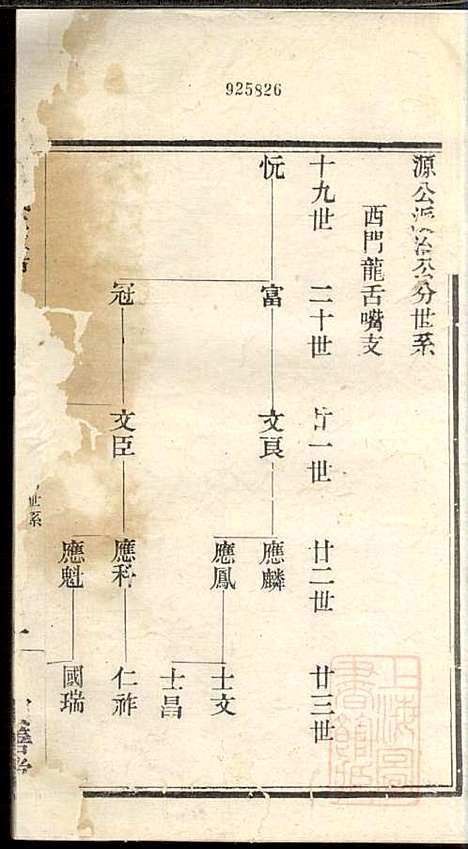 925826
源公派
分世系
西門龍舌嘴支
十九世
二十世
廿一世
廿二世
廿三世
忨
富
文良
應麟
應鳳
士文
士昌
冠
文臣
應科
仁祚
應魁
國瑞
世系
上海圖書館藏